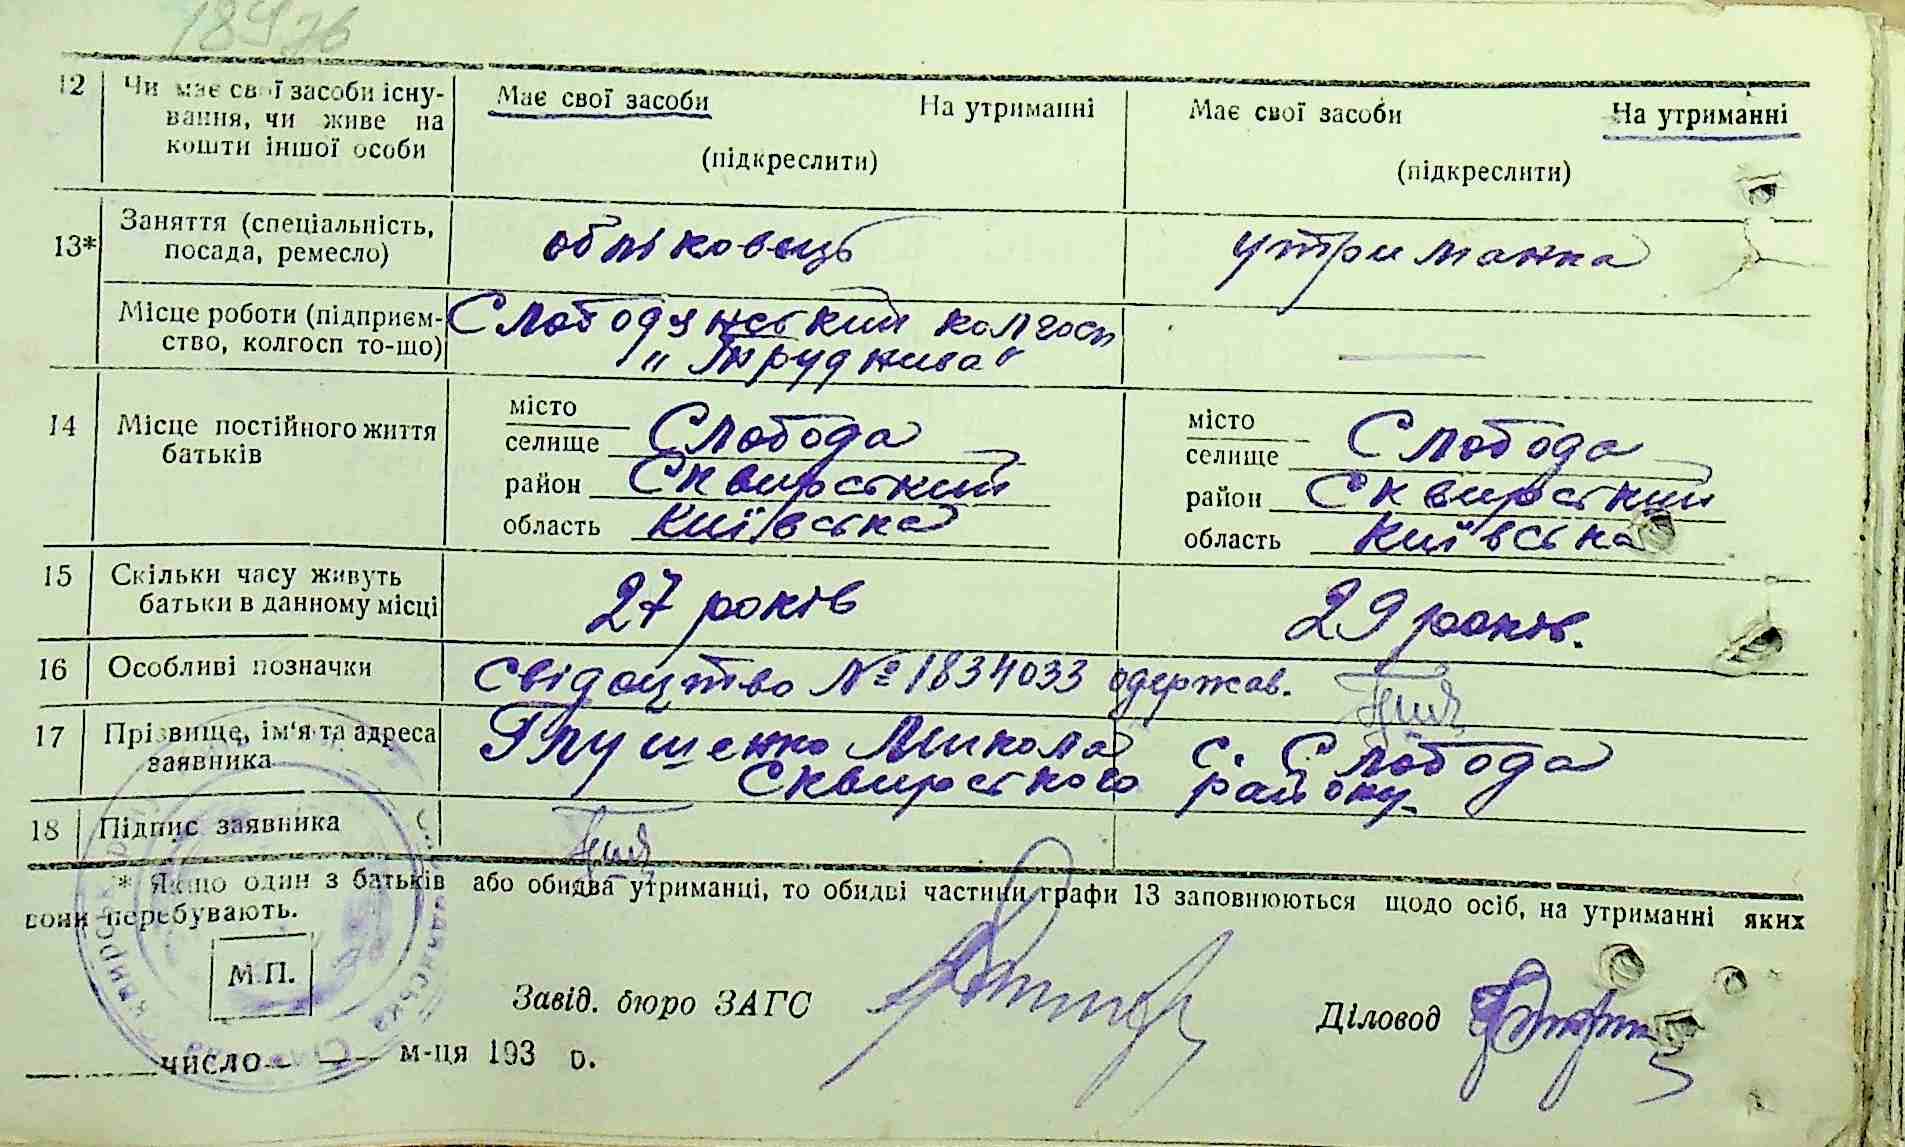 184зв
12 Чи має свої засоби існу- Має свої засоби На утриманні Має свої засоби На утриманні
вання, чи живе на
кошти іншої особи (підкреслити) (підкреслити)
13* Заняття (спеціальність, обліковець утриманка
посада, ремесло)
Місце роботи (підприєм- Слободянський колгосп
ство, колгосп то-що) „Труднива"
14 Місце постійного життя місто місто
батьків селище Слобода селище Слобода
район Сквирський район Сквирський
область Київська область Київська
15 Скільки часу живуть 27 років 29 років.
батьки в данному місці
16 Особливі позначки свідоцтво № 1834033 одержав.
17 Прізвище, ім'я та адреса Глушенко Микола с. Слобода
заявника Сквирського району
18 Підпис заявника
* Якщо один з батьків або обидва утриманці, то обидві частини графи 13 заповнюються щодо осіб, на утриманні яких
вони перебувають.
М.П.
Завід. бюро ЗАГС Діловод
число м-ця 193 р.